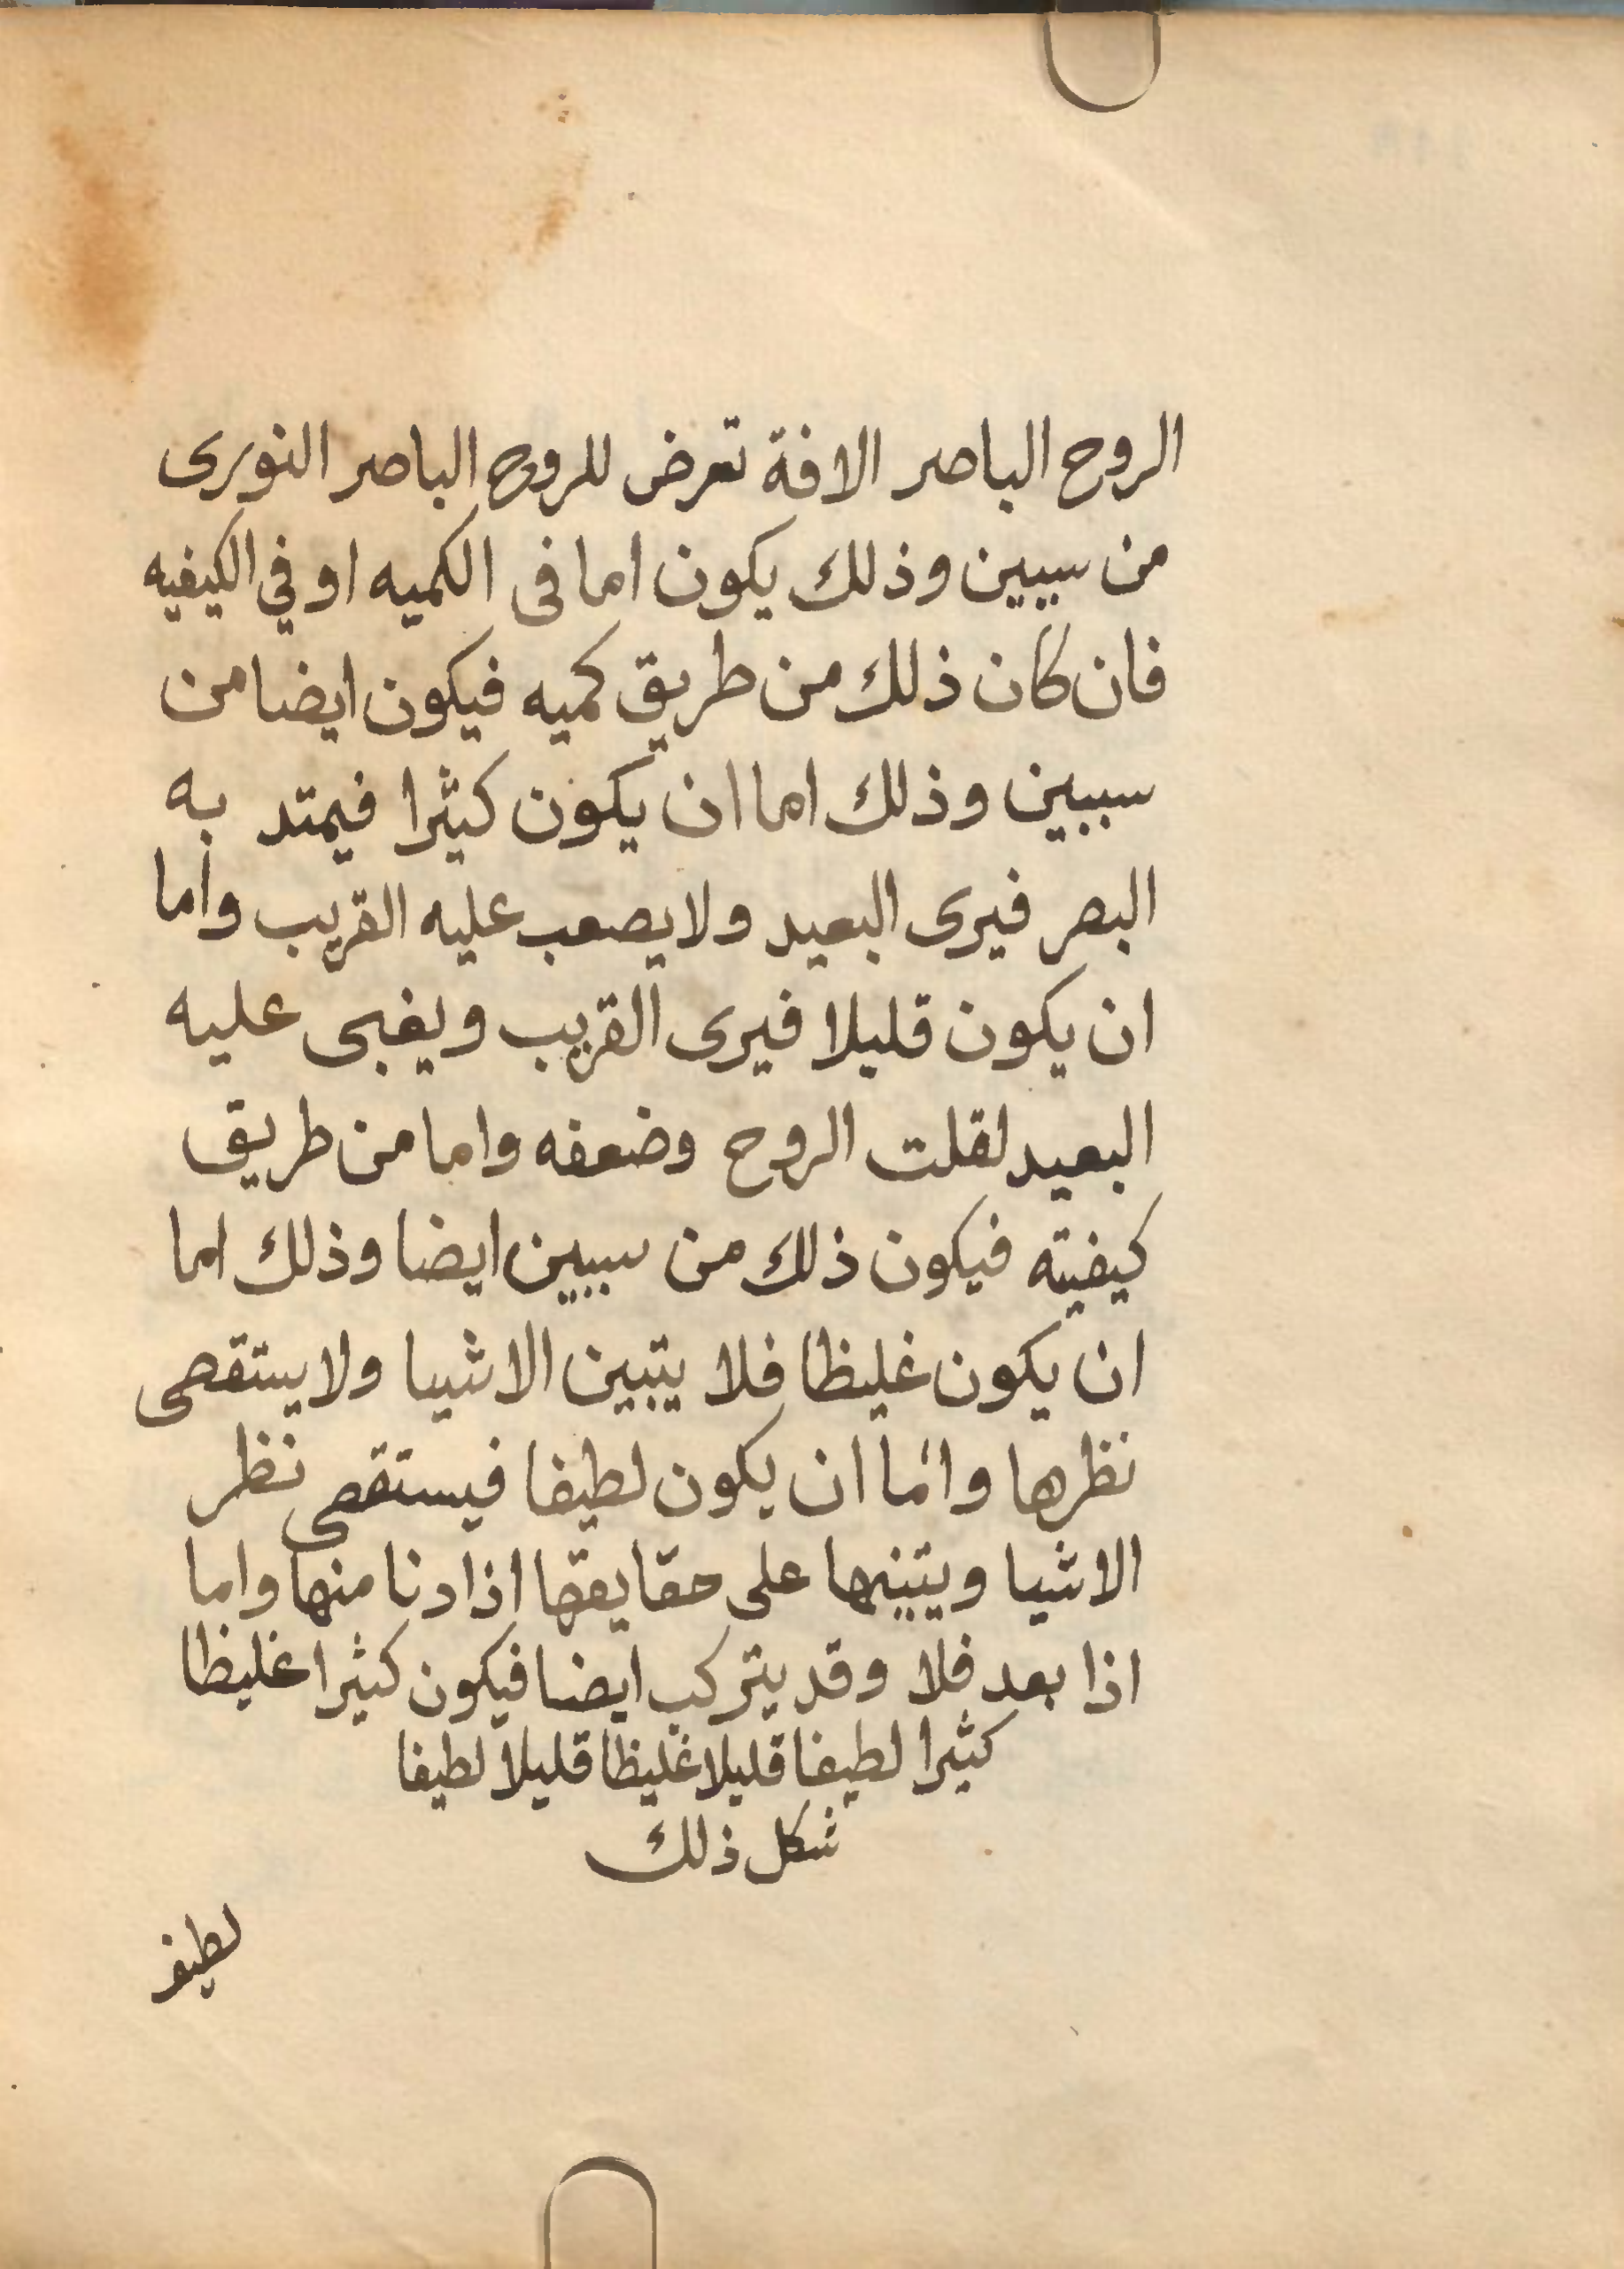 الروح الباصر الافة تعرض للروح الباصر النورى
من سببين وذلك يكون اما فى الكميه او في الكيفيه
فان كان ذلك من طريق كميه فيكون ايضا من
سببين وذلك اما ان يكون كثيرا فيمتد به
البصر فيرى البعيد ولا يصعب عليه القريب واما
ان يكون قليلا فيرى القريب ويغبى عليه
البعيد لقلت الروح وضعفه واما من طريق
كيفيته فيكون ذلك من سببين ايضا وذلك اما
ان يكون غليظا فلا يتبين الاشيا ولا يستقصى
نظرها واما ان يكون لطيفا فيستقصى نظر
الاشيا ويتبينها على حقايقها اذا دنا منها واما
اذا بعد فلا وقد يتركب ايضا فيكون كثيرا غليظا
كثيرا لطيفا قليلا غليظا قليلا لطيفا
شكل ذلك
لطيف